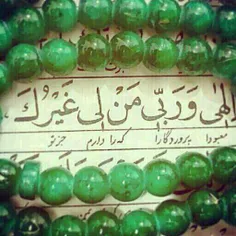 الٰهي وَرَبّي مَنْ لي غَيْرُكَ
معبودا پروردگارا که را دارم جز تو